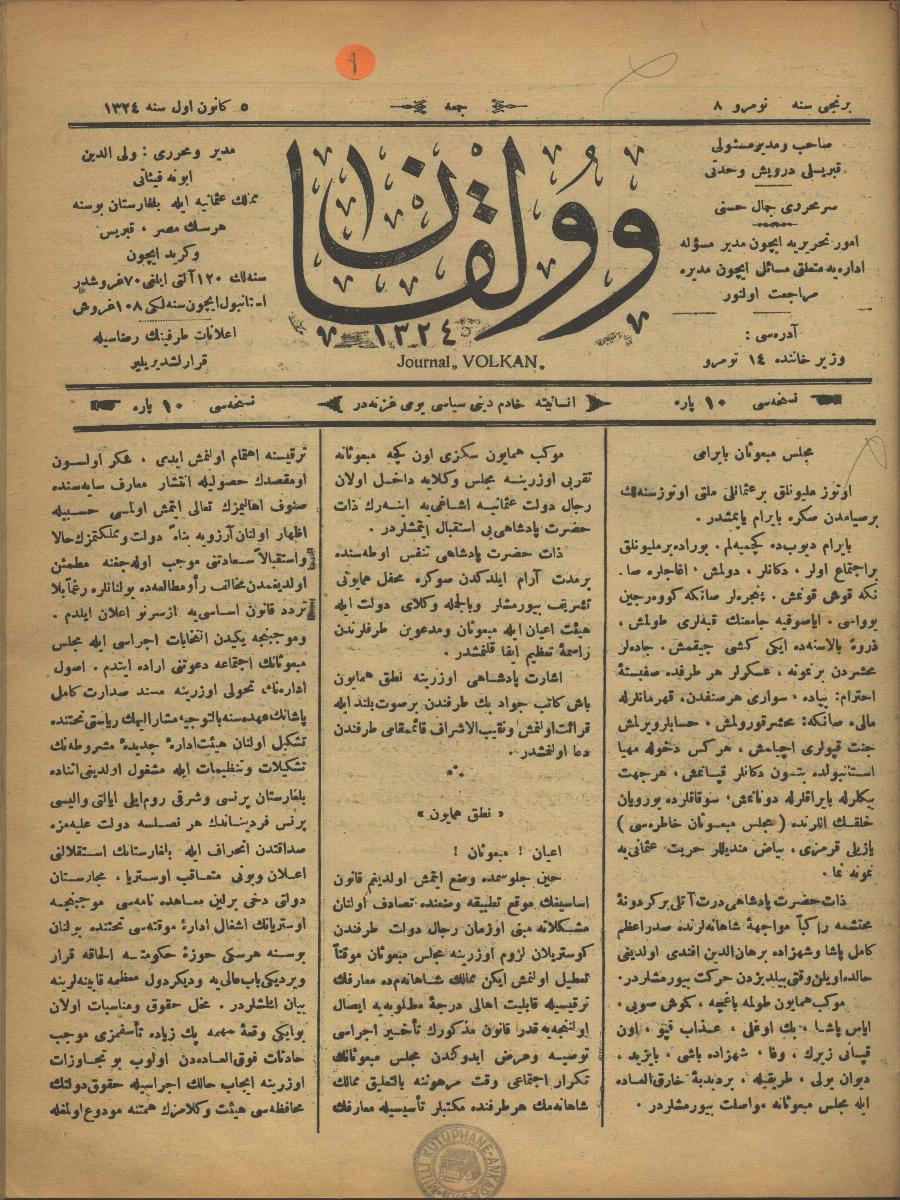 برنجی سنه نومرو ٨
جمعه
٥ کانون اول سنه ١٣٢٤
صاحب ومدیر مسئولی
قبریسلی درویش وحدتی
سر محرری جمال حسنی
امور تحریریه ایچون مدیر مسؤله
اداره‌یه متعلق مسائل ایچون مدیره
مراجعت اولنور
آدره‌سی :
وزیر خاننده ١٤ نومرو
وولقان
١٣٢٤
Journal „ VOLKAN „
مدیر ومحرری : ولی الدین
ابونه فیئاتی
ممالك عثمانیه ایله بلغارستان بوسنه
هرسك مصر ، قبریس
وکرید ایچون
سنه‌لك ١٢٠ آلتی ایلغی ٧٠ غروشدر
استانبول ایچون سنه‌لکی ١٠٨ غروش
اعلانات طرفینك رضاسیله
قرارلشدیریلیر
نسخه‌سی ١٠ پاره
انسانیته خادم دینی سیاسی یومی غزته‌در
نسخه‌سی ١٠ پاره
مجلس مبعوثان بایرامی
اوتوز ملیونلق بر عثمانلی ملتی اوتوز سنه‌لك
بر صیامدن صکره بایرام یاپمشدر .
بایرام دیوب‌ده کچمیه‌لم . بوراده بر ملیونلق
بر اجتماع اولر ، دکانلر ، دولمش ، اغاجلره صا-
نکه قوش قونمش . پنجره‌لر صانکه کووه‌رجین
یوواسی . ایاصوفیه جامعنك قبه‌لری طولمش ،
ذروهٔ بالاسنه‌ده ایکی کشی چیقمش . جاده‌لر
محشردن بر نمونه ، عسکرلر هر طرفده صفبستهٔ
احترام : پیاده ، سواری هر صنفدن ، قهرمانلرله
مالی ، صانکه : محشر قورولمش ، حسابلر ویرلمش
جنت قپولری آچیلمش ، هرکس دخوله مهیا
استانبولده بتون دکانلر قپانمش ، هر جهت
بیکلرله بایراقلرله دونانمش ؛ سوقاقلرده یورویان
خلقك انلرنده ( مجلس مبعوثان خاطره‌سی )
یازیلی قرمزی ، بیاض مندیللر حریت عثمانی‌یه
نمونه نما .
ذات حضرت پادشاهی درت آتلی بر کردونهٔ
محتشمه راکباً مواجههٔ شاهانه‌لرنده صدراعظم
کامل پاشا وشهزاده برهان‌الدین افندی اولدیغی
حالده اویلن وقتی ییلدیزدن حرکت بیورمشلردر .
موکب همایون طولمه باغچه ، کوش سویی ،
ایاس پاشا ، بك اوغلی ، عذاب قپو ، اون
قپانی زیرك ، وفا ، شهزاده باشی ، بایزید ،
دیوان یولی ، طریقیله ، بر دبدبهٔ خارق‌العاده
ایله مجلس مبعوثانه مواصلت بیورمشلردر .
موکب همایون سکزی اون کچه مبعوثانه
تقربی اوزرینه مجلس وکلایه داخل اولان
رجال دولت عثمانیه اشاغی‌یه اینه‌رك ذات
حضرت پادشاهی‌یی استقبال ایتمشلردر .
ذات حضرت پادشاهی تنفس اوطه‌سنده
بر مدت آرام ایلدکدن صوکره محفل همایونی
تشریف بیورمشلر وبالجمله وکلای دولت ایله
هیئت اعیان ایله مبعوثان ومدعوین طرفلرندن
راسمهٔ تعظیم ایفا قلنمشدر .
اشارت پادشاهی اوزرینه نطق همایون
باش کاتب جواد بك طرفندن بر صوت بلند ایله
قرائت اولنمش ونقیب‌الاشراف قائممقامی طرفندن
دعا اولنمشدر .
« نطق همایون »
اعیان ! مبعوثان !
حین جلوسمده وضع ایتمش اولدیغم قانون
اساسینك موقع تطبیقه وضعنده تصادف اولنان
مشکلاته مبنی اوزمان رجال دولت طرفندن
کوستریلان لزوم اوزرینه مجلس مبعوثان موقتاً
تعطیل اولنمش ایکن ممالك شاهانه‌مده معارفك
ترقیسیله قابلیت اهالی درجهٔ مطلوبه‌یه ایصال
اولنجیه قدر قانون مذکورك تأخیر اجراسی
توصیه وعرض ایدوکندن مجلس مبعوثانك
تکرار اجتماعی وقت مرهوننه بالتعلیق ممالك
شاهانه‌مك هر طرفنده مکتبلر تأسیسیله معارفك
ترقیسنه اهتمام اولنمش ایدی ، شکر اولسون
اومقصدك حصولیله انتشار معارف سایه‌سنده
صنوف اهالیمزك تعالی ایتمش اولمسی حسبیله
اظهار اولنان آرزویه بناءً دولت ومملکتمزك حالا
واستقبالاً سعادتنی موجب اوله‌جغنه مطمئن
اولدیغمدن مخالف رأو مطالعه‌ده بولنانلره رغماً بلا
تردد قانون اساسی‌یه ازسرنو اعلان ایلدم .
وموجبنجه یکیدن انتخابات اجراسی ایله مجلس
مبعوثانك اجتماعه دعوتنی اراده ایتدم . اصول
اداره‌نك تحولی اوزرینه مسند صدارت کامل
پاشانك عهده‌سنه بالتوجیه مشارالیهك ریاستی تحتنده
تشکیل اولنان هیئت ادارهٔ جدیدهٔ مشروطه‌نك
تشکیلات وتنظیمات ایله مشغول اولدیغی اثناده
بلغارستان پرنسی وشرقی روم‌ایلی ایالتی والیسی
پرنس فردیناندك هر نصلسه دولت علیه‌مزه
صداقتدن انحراف ایله بلغارستانك استقلالنی
اعلان وبونی متعاقب اوستریا ، مجارستان
دولتی دخی برلین معاهده نامه‌سی موجبنجه
اوستریانك اشغال ادارهٔ موقته‌سی تحتنده بولنان
بوسنه هرسکی حوزهٔ حکومته الحاقه قرار
ویردیکی باب‌عالی‌یه ودیکر دول معظمه قابینه‌لرینه
بیان ایتمشلردر . مخل حقوق ومناسبات اولان
بو ایکی وقعهٔ مهمه پك زیاده تأسفمزی موجب
حادثات فوق‌العاده‌دن اولوب بو تجاوزات
اوزرینه ایجاب حالك اجراسیله حقوق دولتك
محافظه‌سی هیئت وکلامزك همتنه مودوع اولمغله
MİLLİ KÜTÜPHANE-ANKARA